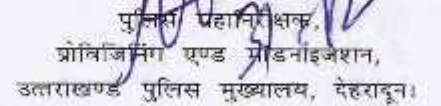 पुलिस महानिरीक्षक,
प्रोविजिनिंग एण्ड मॉडर्नाइजेशन,
उत्तराखण्ड पुलिस मुख्यालय, देहरादून।